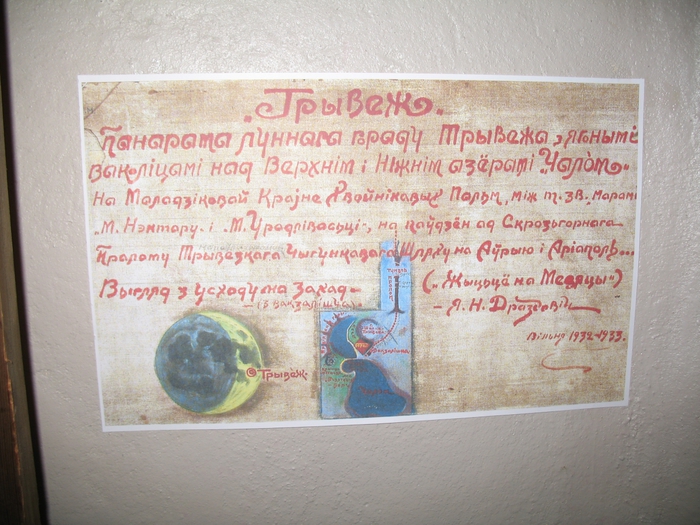 „Трывеж“.
Панарама луннага граду Трывежа з ягонымі
ваколіцамі над Верхнім і Ніжнім азёрамі „Чалом“
На Маладзіковай Крајне Двайніковых Пальм, між т. зв. марамі
„М. Нэктару. і „М. Урадлівасьці“, на паўдзён ад Скрозьгорнага
Пралому Трывезкага Чыгунковага Шляху на Аўрыю і Аріаполь...
Выгляд з усходу на Захад — („Жыцьцё на Месяцы“)
— із вакзалішча. — Я. Н. Драздовіч
Вільня 1932-1933.
Трывеж.